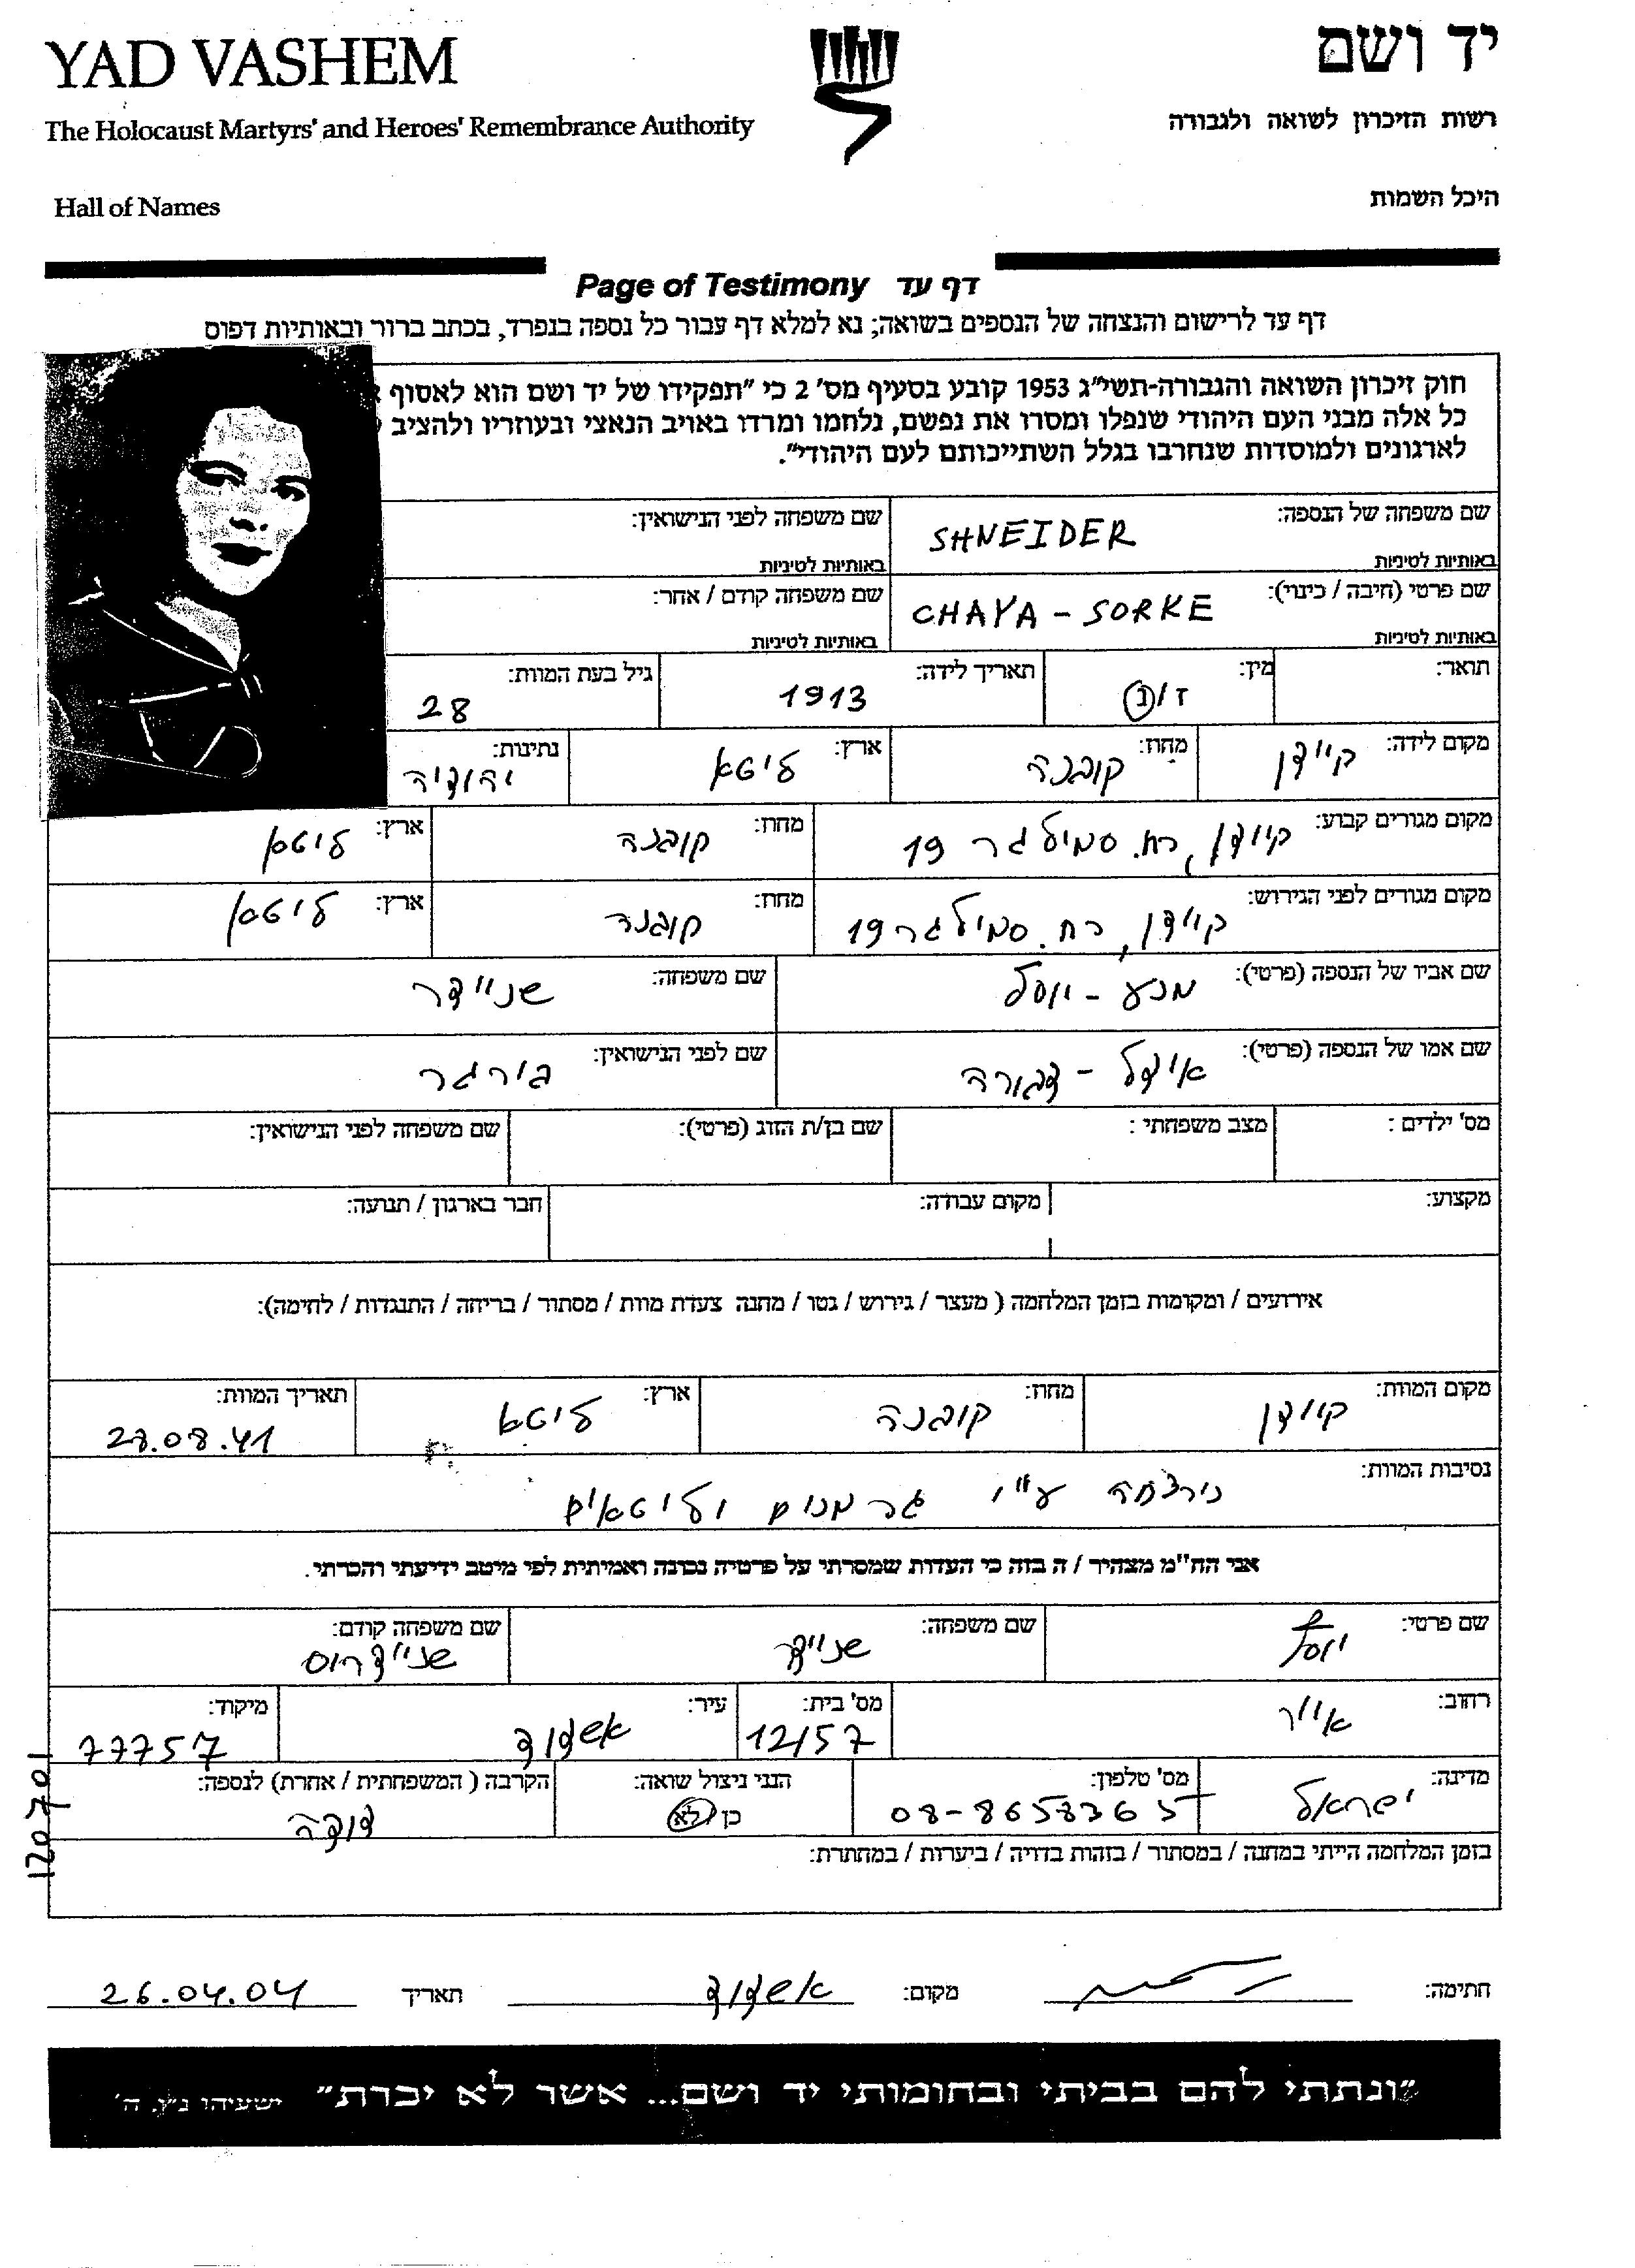 YAD VASHEM
יד ושם
The Holocaust Martyrs' and Heroes' Remembrance Authority
רשות הזיכרון לשואה ולגבורה
Hall of Names
היכל השמות
Page of Testimony דף עד
דף עד לרישום והנצחה של הנספים בשואה; נא למלא דף עבור כל נספה בנפרד, בכתב ברור ובאותיות דפוס
חוק זיכרון השואה והגבורה-תשי"ג 1953 קובע בסעיף מס' 2 כי "תפקידו של יד ושם הוא לאסוף
כל אלה מבני העם היהודי שנפלו ומסרו את נפשם, נלחמו ומרדו באויב הנאצי ובעוזריו ולהציב
לארגונים ולמוסדות שנחרבו בגלל השתייכותם לעם היהודי".
שם משפחה של הנספה: SHNEIDER שם משפחה לפני הנישואין:
באותיות לטיניות באותיות לטיניות
שם פרטי (חיבה / כינוי): CHAYA - SORKE שם משפחה קודם / אחר:
באותיות לטיניות באותיות לטיניות
תואר: מין: ז/נ תאריך לידה: 1913 גיל בעת המוות: 28
מקום לידה: קיידן מחוז: קובנה ארץ: ליטא נתינות: יהודיה
מקום מגורים קבוע: קיידן, רח. סמילגר 19 מחוז: קובנה ארץ: ליטא
מקום מגורים לפני הגירוש: קיידן, רח. סמילגר 19 מחוז: קובנה ארץ: ליטא
שם אביו של הנספה (פרטי): מנע - יוסל שם משפחה: שניידר
שם אמו של הנספה (פרטי): אידל - דבורה שם לפני הנישואין: בורגר
מס' ילדים : מצב משפחתי : שם בן/ת הזוג (פרטי): שם משפחה לפני הנישואין:
מקצוע: מקום עבודה: חבר בארגון / תנועה:
אירועים / ומקומות בזמן המלחמה ( מעצר / גירוש / גטו / מחנה צעדת מוות / מסתור / בריחה / התנגדות / לחימה):
מקום המוות: קיידן מחוז: קובנה ארץ: ליטא תאריך המוות: 28.08.41
נסיבות המוות: נירצחה ע"י גרמנים וליטאים
אני הח"מ מצהיר / ה בזה כי העדות שמסרתי על פרטיה נכונה ואמיתית לפי מיטב ידיעתי והכרתי.
שם פרטי: יוסף שם משפחה: שניידר שם משפחה קודם: שניידרוס
רחוב: אייר מס' בית: 12/57 עיר: אשדוד מיקוד: 77757
מדינה: ישראל מס' טלפון: 08-8658365 הנני ניצול שואה: כן / לא הקרבה ( המשפחתית / אחרת) לנספה: דודה
בזמן המלחמה הייתי במחנה / במסתור / בזהות בדויה / ביערות / במחתרת:
120701
חתימה: מקום: אשדוד תאריך 26.04.04
"ונתתי להם בביתי ובחומותי יד ושם... אשר לא יכרת" ישעיהו נ"ו, ה'